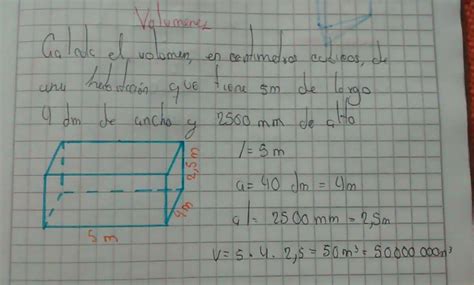 Volumenes
Calcula el volumen, en centimetros cubicos, de
una habitación que tiene 5m de largo
4 dm de ancho y 2500 mm de alto
l = 5m
a = 40 dm = 4m
al = 2500 mm = 2,5m
V = 5 · 4 · 2,5 = 50 m³ = 50000.000 m³
2,5m
4m
5 m